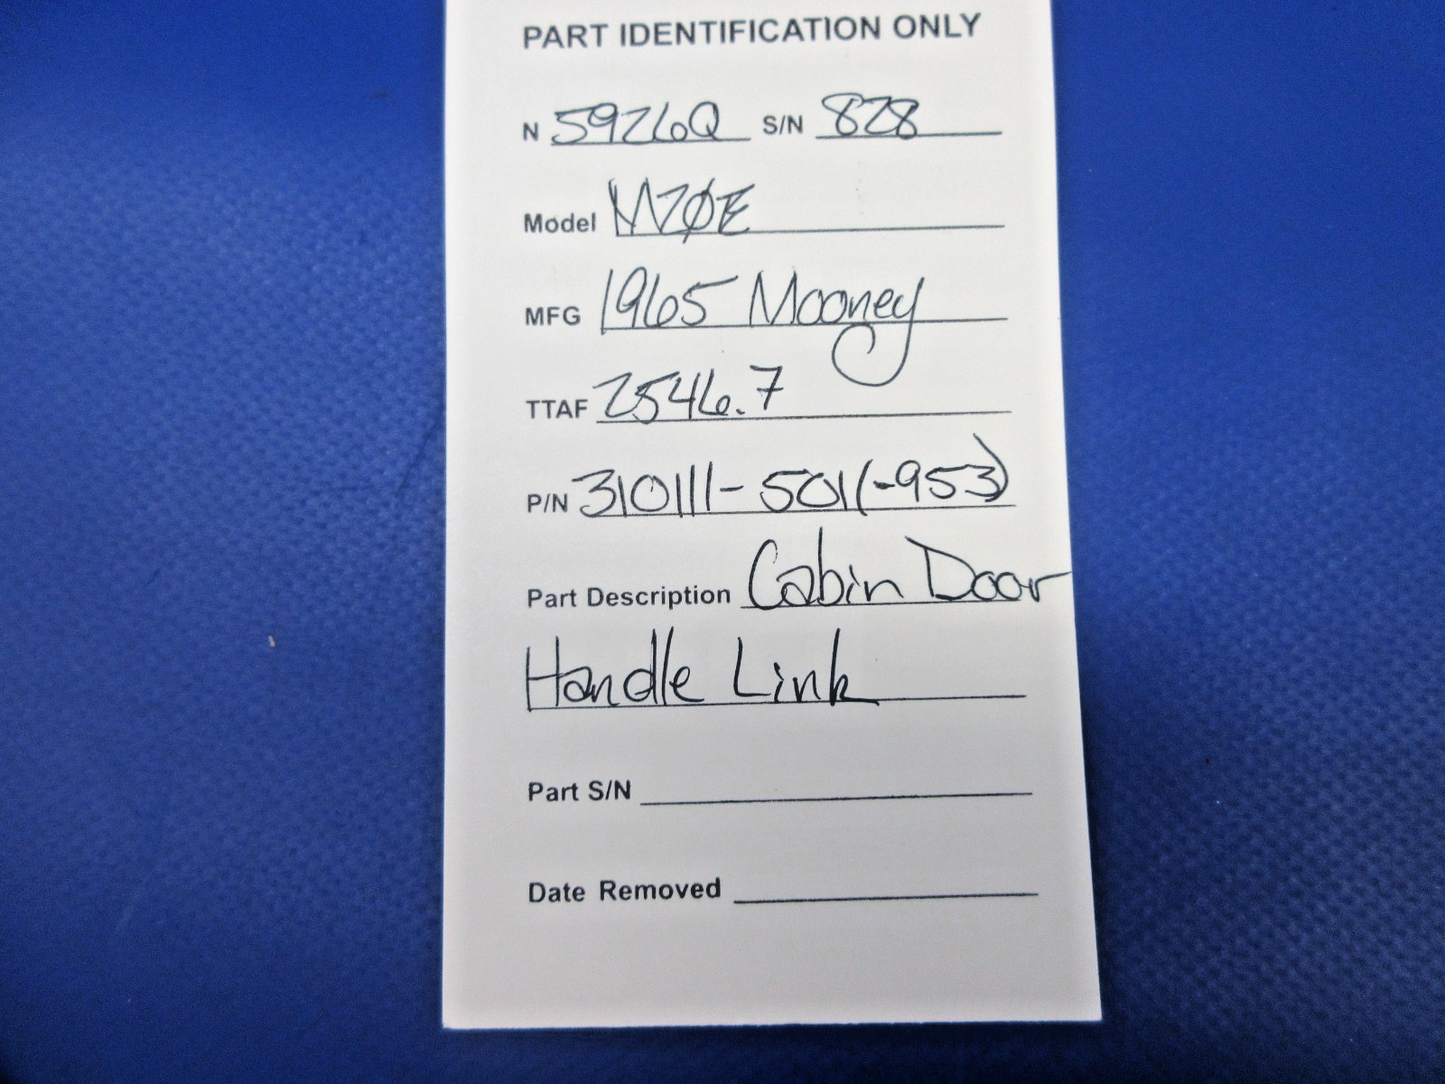 PART IDENTIFICATION ONLY
N 5926Q S/N 828
Model M20E
MFG 1965 Mooney
TTAF 2546.7
P/N 310111-501(-953)
Part Description Cabin Door
Handle Link
Part S/N
Date Removed